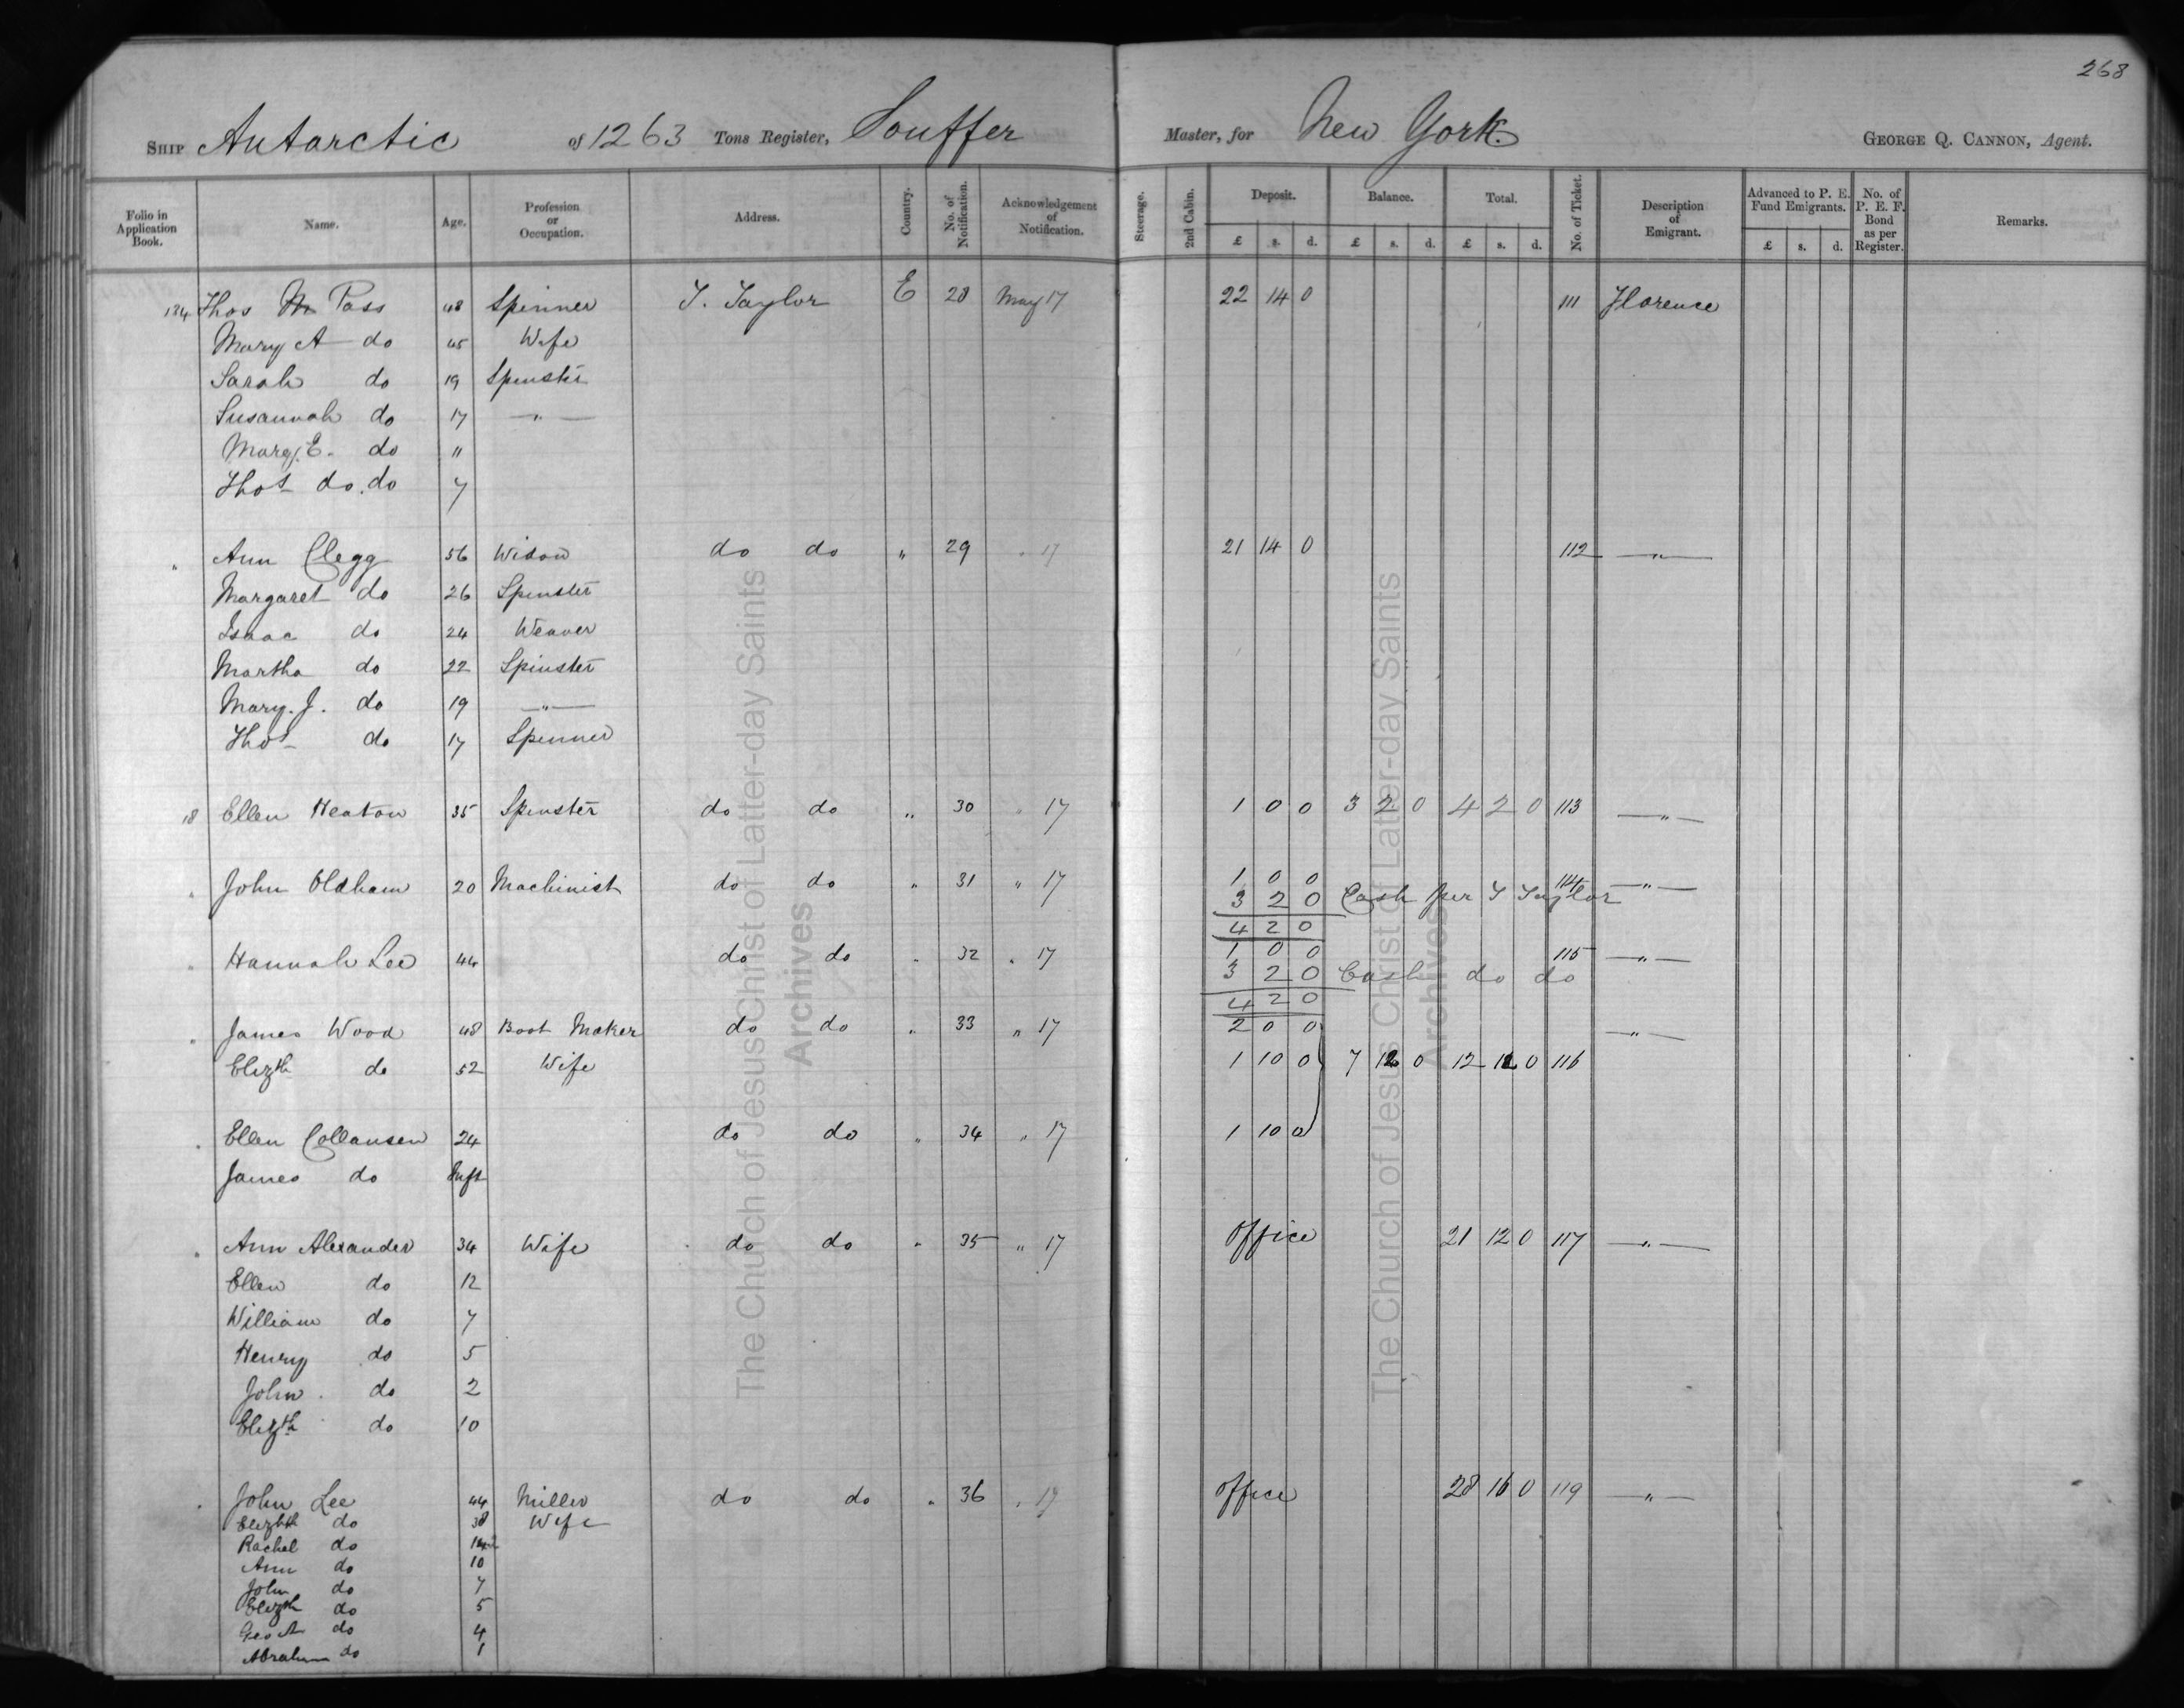 268
SHIP Antarctic of 1263 Tons Register, Souffer Master, for New York. GEORGE Q. CANNON, Agent.
Folio in Application Book. Name. Age. Profession or Occupation. Address. Country. No. of Notification. Acknowledgement of Notification. Steerage. 2nd Cabin. Deposit. £ s. d. Balance. £ s. d. Total. £ s. d. No. of Ticket. Description of Emigrant. Advanced to P. E. Fund Emigrants. £ s. d. No. of P. E. F. Bond as per Register. Remarks.
134 Thos Pass 48 Spinner T. Taylor E 28 May 17 22 14 0 111 Florence
Mary A do 45 Wife
Sarah do 19 Spinster
Susannah do 17 "
Mary E. do "
Thos do. do 7
" Ann Clegg 56 Widow do do " 29 " 17 21 14 0 112 "
Margaret do 26 Spinster
Isaac do 24 Weaver
Martha do 22 Spinster
Mary. J. do 19 "
Thos do 17 Spinner
18 Ellen Heaton 35 Spinster do do " 30 " 17 1 0 0 3 2 0 4 2 0 113 "
" John Oldham 20 Machinist do do " 31 " 17 1 0 0 114 "
3 2 0 Cash per T Taylor
4 2 0
" Hannah Lee 44 do do " 32 " 17 1 0 0 115 "
3 2 0 Cash do do
4 2 0
" James Wood 48 Boot Maker do do " 33 " 17 2 0 0 "
Elizth do 52 Wife 1 10 0 7 12 0 12 12 0 116
" Ellen Collansen 24 do do " 34 " 17 1 10 0
James do Inft
" Ann Alexander 34 Wife do do " 35 " 17 Office 21 12 0 117 "
Ellen do 12
William do 7
Henry do 5
John do 2
Elizth do 10
" John Lee 44 Miller do do " 36 " 17 Office 28 16 0 119 "
Elizbth do 38 Wife
Rachel do
Ann do 10
John do 7
Elizth do 5
Geo A do 4
Abraham do 1
The Church of Jesus Christ of Latter-day Saints
Archives
The Church of Jesus Christ of Latter-day Saints
Archives